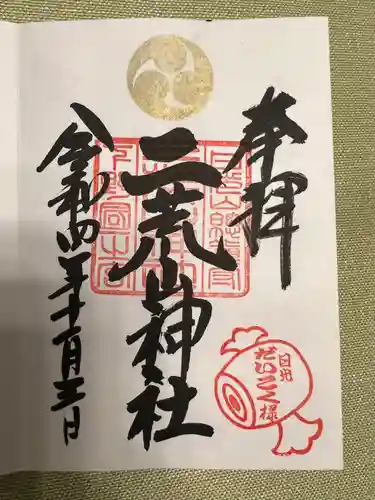 奉拝
二荒山神社
令和四年十二月三日
日光
だいこく様